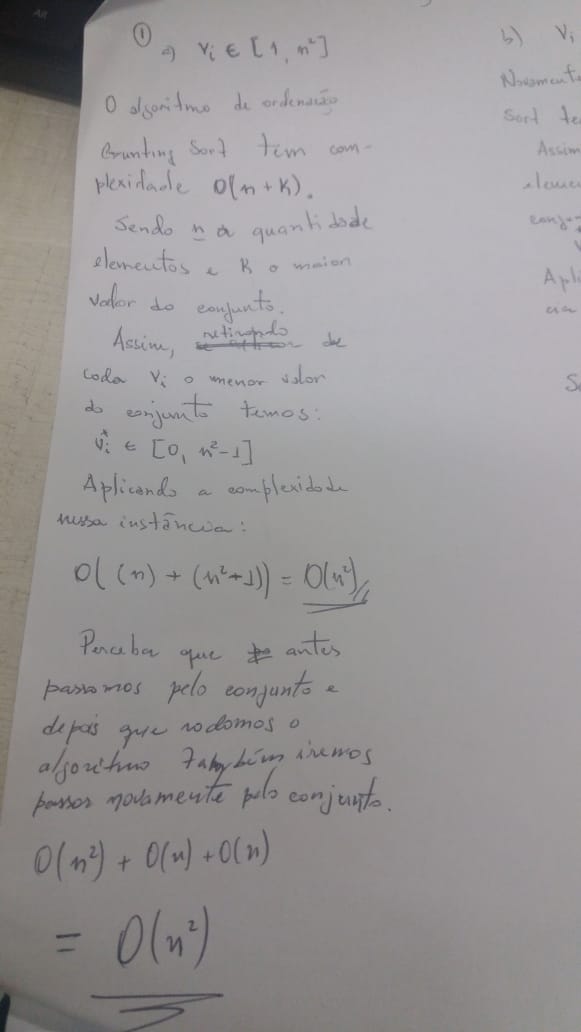 ①
a) Vi ∈ [1, n²]
O algoritmo de ordenação
Counting Sort tem com-
plexidade O(n + K).
Sendo n a quantidade
elementos e K o maior
valor do conjunto.
Assim, retirando de
cada Vi o menor valor
do conjunto temos:
Vi* ∈ [0, n²-1]
Aplicando a complexidade
nessa instância:
O( (n) + (n²+1)) = O(n²)
Perceba que antes
passamos pelo conjunto e
depois que rodamos o
algoritmo também iremos
passar novamente pelo conjunto.
O(n²) + O(n) + O(n)
= O(n²)
b) Vi
Novamente
Sort te
Assim
eleme
conju
Apli
cia
S